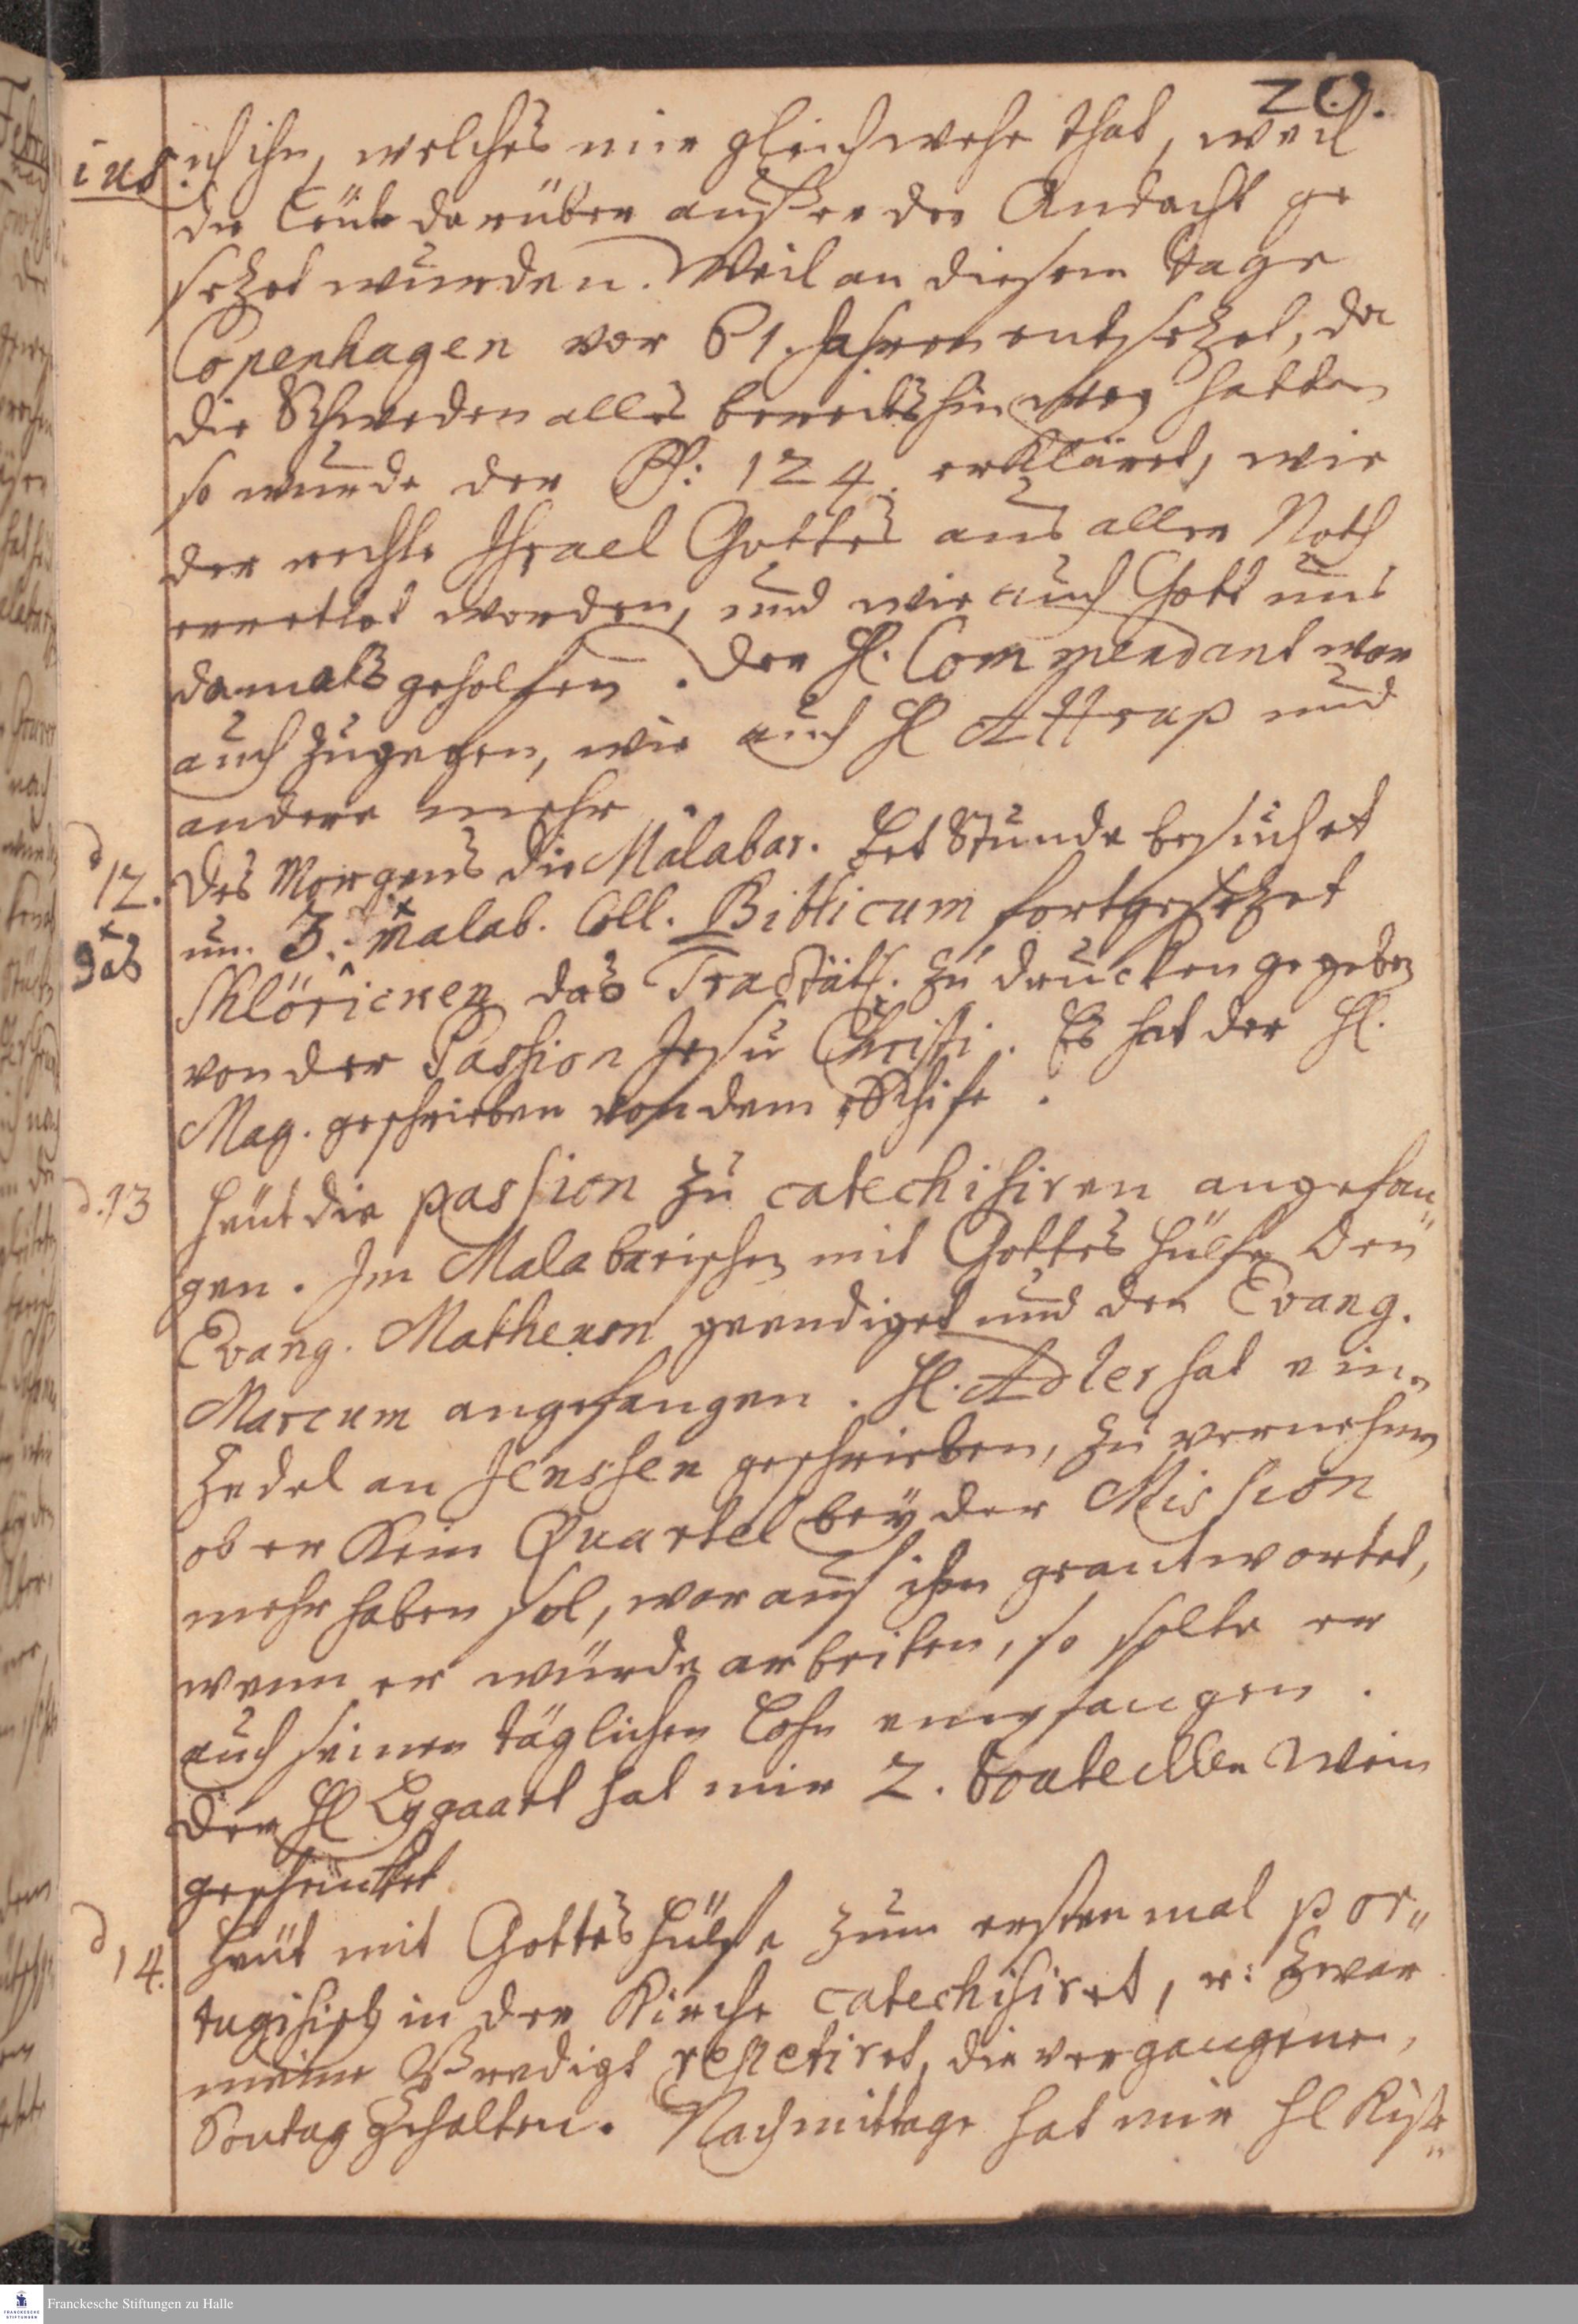 20.
ius.
ich ihn, welches mir gleich wehe that, weil
die Leüte darüber außer der Andacht ge
sezet wurden. Weil an diesem Tage
Copenhagen vor 61. Jahren entsezet, da
die Schweden alles bereits hinweg hatten
so wurde der Ps: 124. erkläret, wie
der rechte Israel Gottes aus aller Noth
errettet worden, und wie auch Gott uns
damals geholfen. Der H. Commendant war
auch zugegen, wie auch H Attrup und
andere mehr.
d 12. Des Morgens die Malabar. Bet Stunde besuchet
un. 3. malab. Coll. Biblicum fortgesezet
das Tractätl. zu drucken gegeben
von der Passion Jesu Christi. Es hat der H.
Mag. geschrieben von dem Schife.
d. 13 Heüt die passion zu catechisiren angefan„
gen. Im Malabarischen mit Gottes Hülfe den
Evang. Matheum geendiget und den Evang.
Marcum angefangen. H. Adler hat ein„
Zedel an Jenshen geschrieben, zu vernehmen
ob er kein Quartel bey der Mission
mehr haben sol, worauf ihm geantwortet,
wenn er würde arbeiten, so solte er
auch seinen täglichen Lohn empfangen.
Der H Eygaart hat mir 2. Bouteillen Wein
geschencket
d 14. Heüt mit Gottes Hülfe zum ersten mal por„
tugisisch in der Kirche catechisiret, u: zwar
meine Predigt repetiret, die vergangenen
Sontag gehalten. Nachmittage hat mir H
Franckesche Stiftungen zu Halle